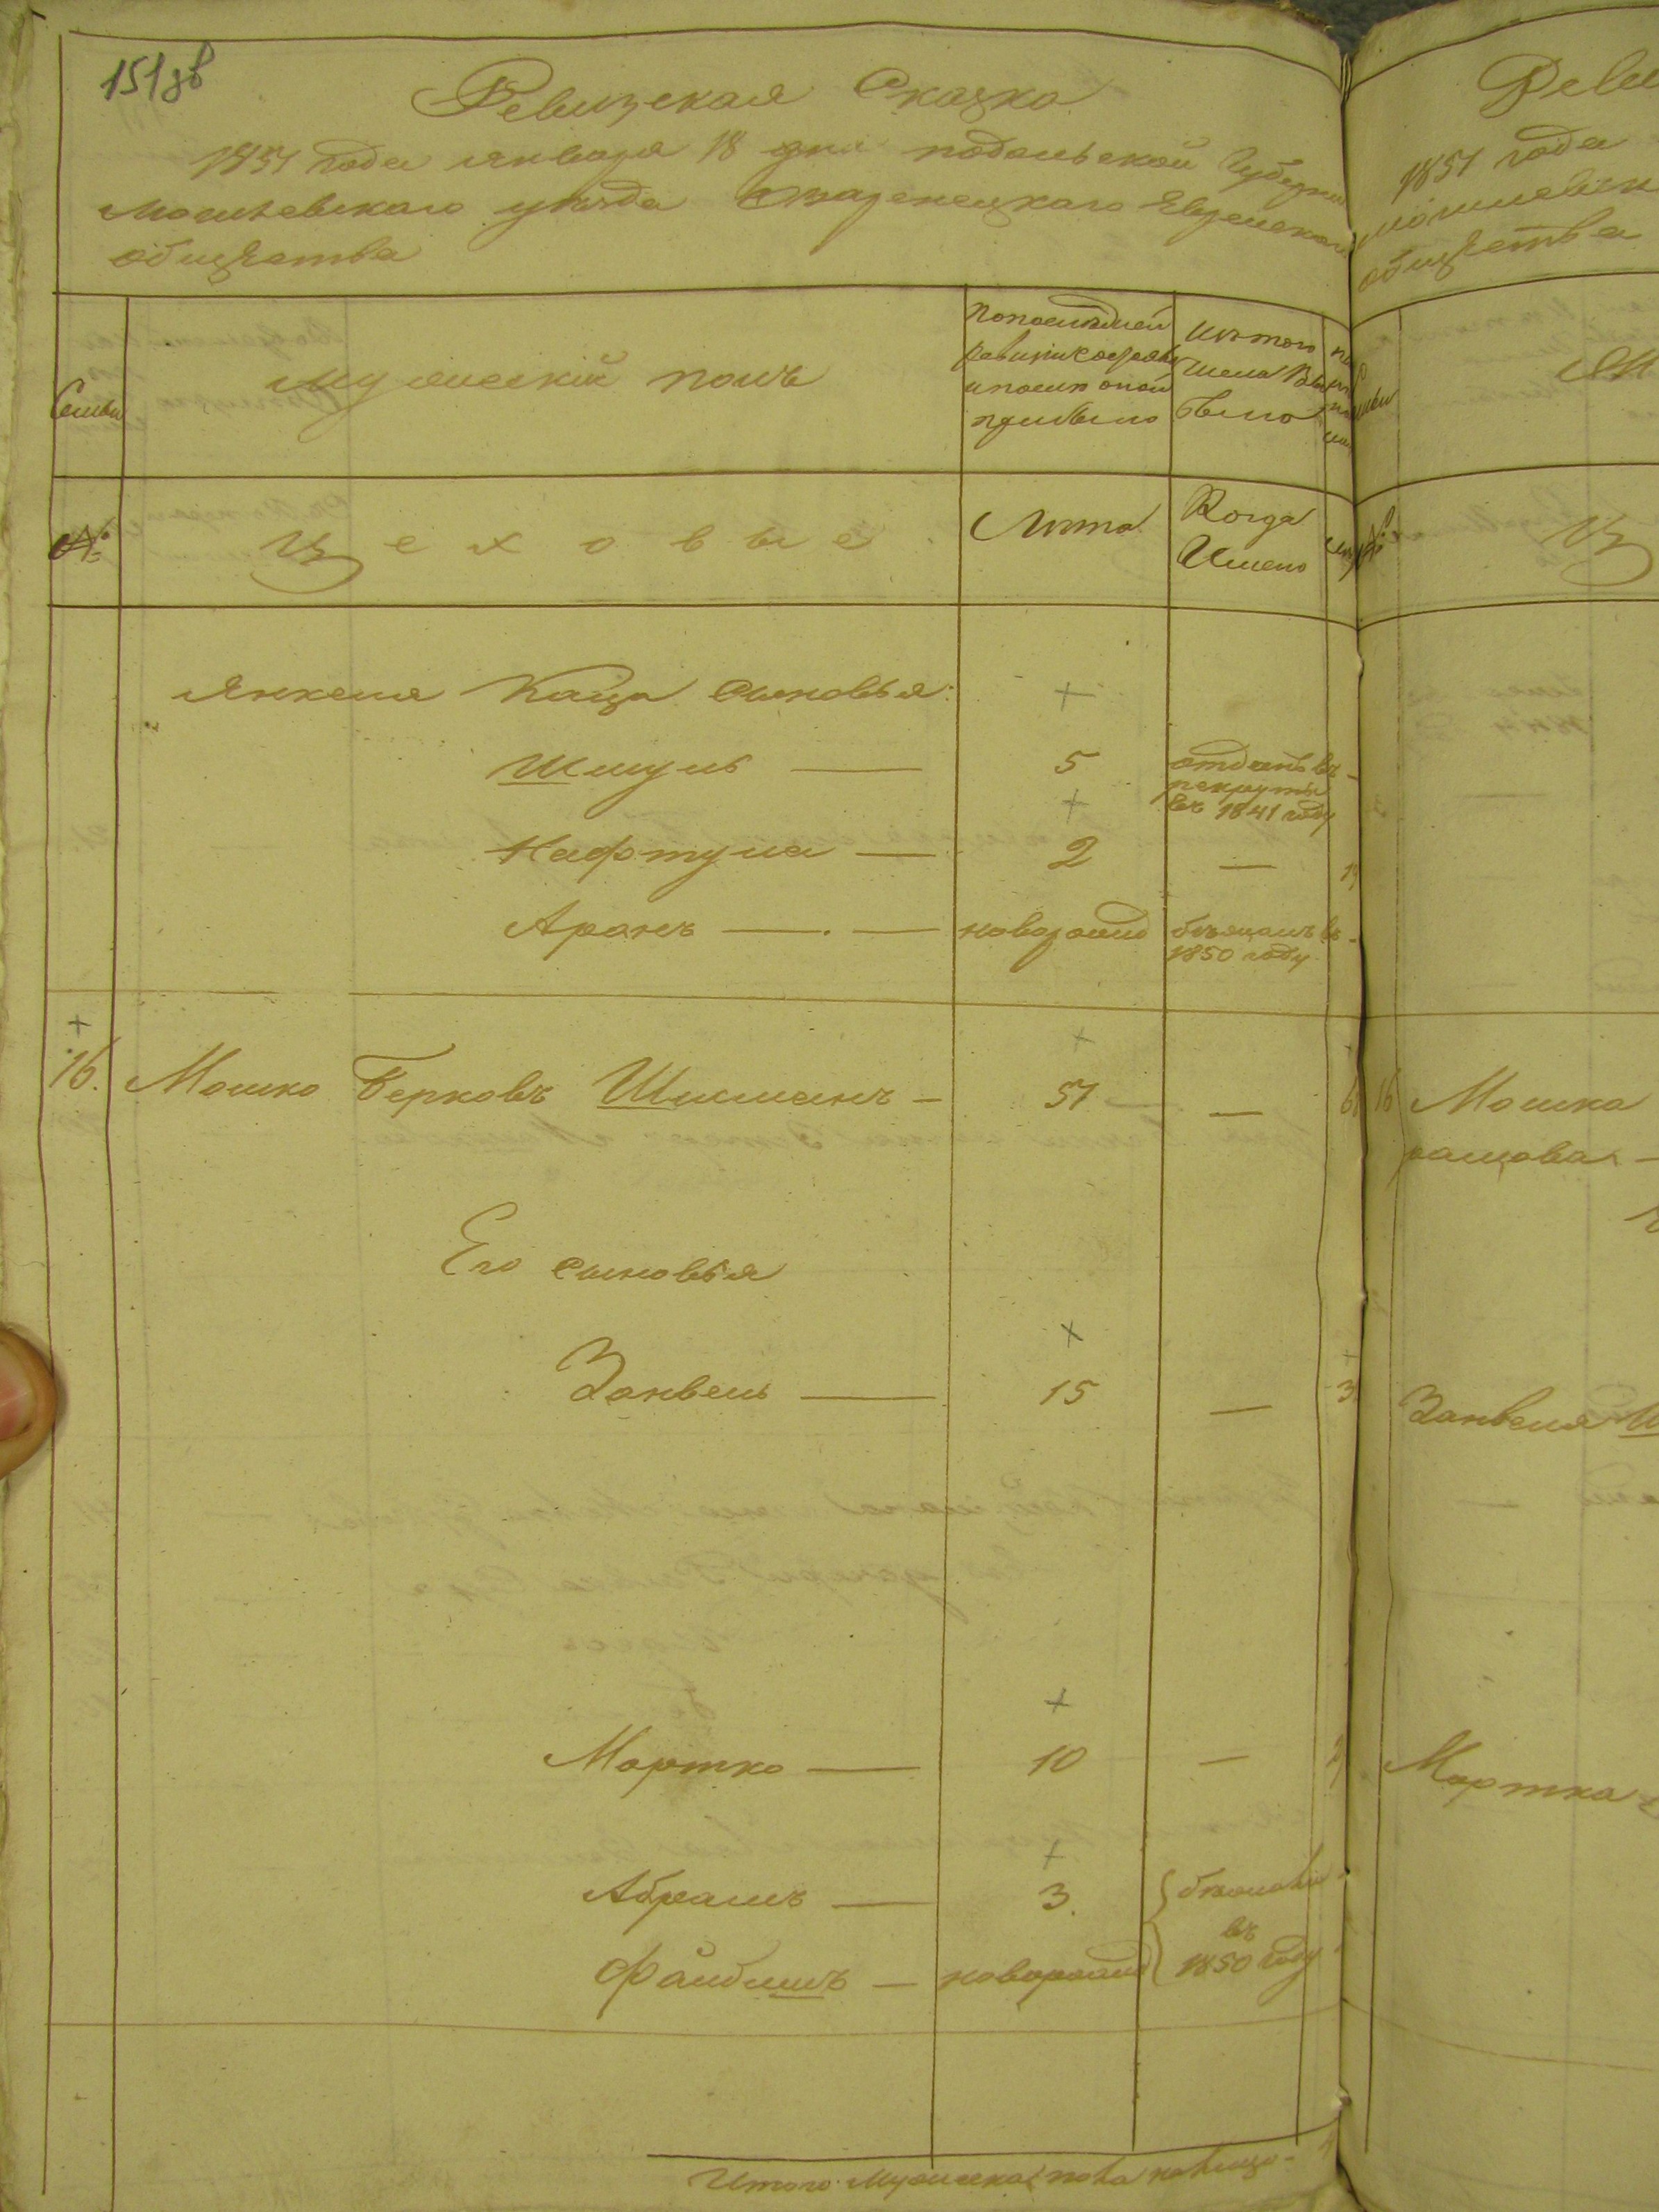 151 зв
Ревизская Сказка
1851 года января 18 дня подольской Губернии
Могилевскаго уезда Озаренецкаго Еврейскаго
общества
Семьи
мужескій полъ
По последней ревизіи состояло и после оной прибыло
Изъ того числа Выбыло
№
Цеховые.
Лета
Когда Имено
Янкеля Каца сыновья:
Шмуль — 5 отданъ въ рекруты въ 1841 году
Нафтула — 2 —
Аронъ — новорожд
1850 году
16. Мошко Берковъ Шисманъ — 51 —
Его сыновья
Занвель — 15 —
Мортко — 10 —
Абрамъ — 3.
Файбишъ — новорожд въ 1850 году
Итого Мужеска пола налицо
Реви
1851 года
могилевск
общества
№
Ц
16 Мошка
Занвеля Ш
Мортка